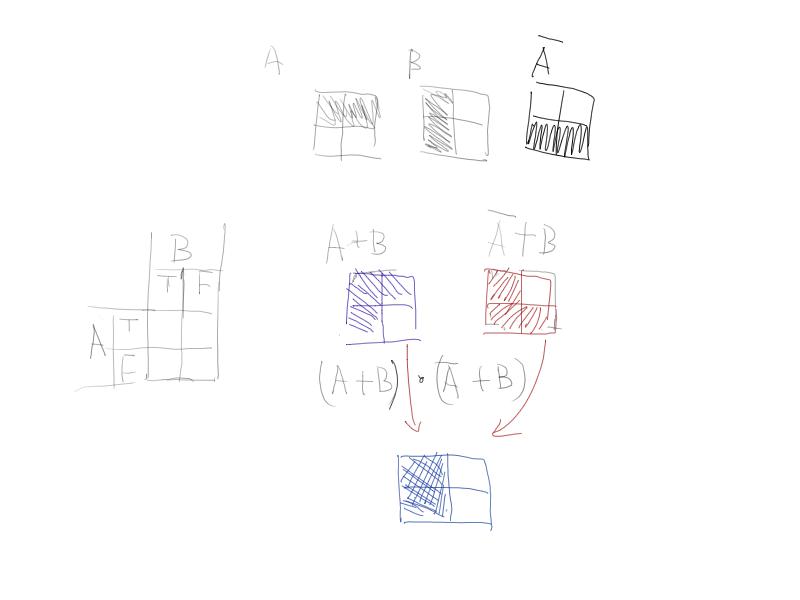 A B A̅
B
T F
A T
F
A+B A̅+B
(A+B) · (A̅+B)